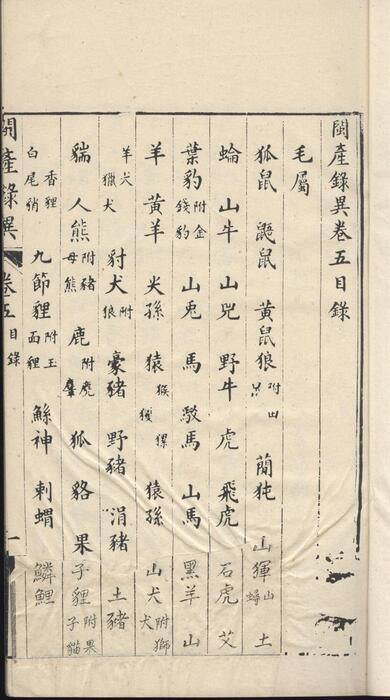 閩產錄異卷五目錄
毛屬
狐鼠 鼯鼠 黃鼠狼附山 䕠㹠 山獋山 土
蜦 山牛 山兕 野牛 虎 飛虎 石虎 艾
葉豹附金錢豹 山兎 馬 駮馬 山馬 黑羊 山
羊 黃羊 火孫 猿猴 猿孫 山犬附獅犬
羊犬獵犬 豺犬附狼 豪豬 野豬 涓豬 土豬
貒 人熊附豬母熊 鹿附麂麞 狐 貉 果子貍附果子貓
香貍白尾猯 九節貍附玉面貍 鯀神 刺蝟 鱗鯉
閩產錄異 卷五目錄 一